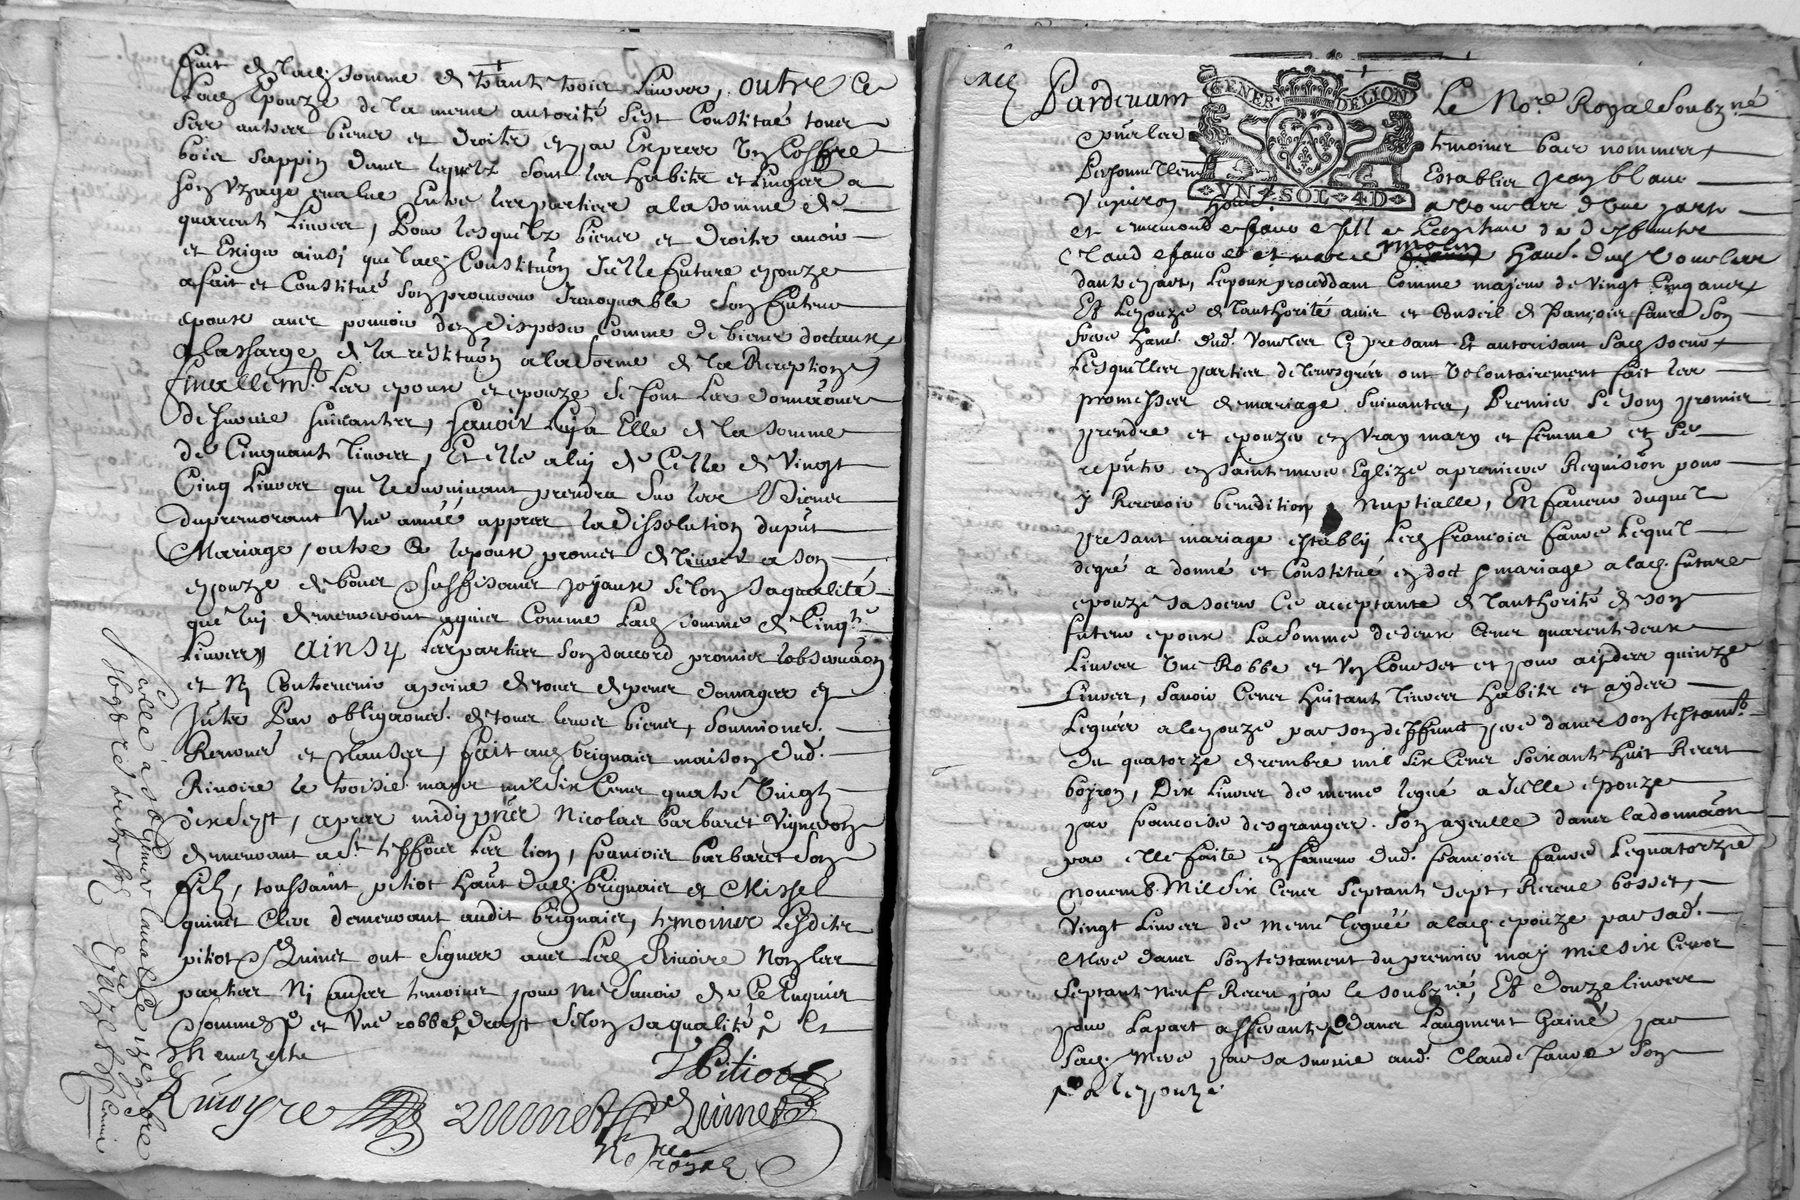 fait de lad. somme de trante troie Livrer, outre Ce
Lad. Epouze de la meme autorité sest Constitué touer
ser autrer biener et droitz et par Exprer Un Coffre
boier sappin daner lequelz sont ler habitz et Linger a
son Uzage evalué Entre ler partier a la somme de
quarent Livrer, Pour lesquelz biener et droitz avoir
et Exiger ainsi que lad. Constituõn Icelle future epouze
a fait et Constitué son procureur Irrevoquable son futeur
epoux avec pouvoir den disposer Comme de biener dotaux
a la charge de la restituõn a la forme de la Reception
finallemt. Ler epoux et epouze se font Ler donnaõner
de survie suivanter, savoir Luy a Elle de la somme
de Cinquant Livrer, Et elle a luy de Celle de Vingt
Cinq Livrer que le survivant prendra Sur ler Biener
du premourant Une année apprer la dissolution du put
Mariage, outre Ce lepoux promet de livrer a son
epouze de boner et suffisaner joyaux selon sa qualité
que luy demeureront aquier Comme Lad. somme de Cinqte
Livrer, Ainsy Ler partier son daccord promier lobservaõn
et Ny Contrevenir a peine de touer depener domager et
Jntr Par obligaõner de touer leurer biener, soumioner
Renoner et clauser, fait aud. brignaier maison dud.
Rivoire le troisie. mars mil six Cener quatre Vingtz
dix sept, aprer midy pner Nicolaer barbaret Vigneron
demeurant a St. Ler lion, francoier barbaret son
fil, toussaint pitiot haut. dud. brignaier et Missel
quinet Clerc demeurant audit brignaier, temoiner Lesditz
pitiot et Quinet ont signer avec Led. Rivoire Non ler
partier Ni autrer temoiner pour ne savoir de Ce Enquier
et Sommer et Une robbe de drapt selon sa qualité et
Chemizette
T Pitiot
Rivoyre Quinet Quinet
Nore. royal
Scellé a
Pardevant Le Nore. Royal Soubzné
GENER. DE LION
UN SOL 4 D
et par ler temoiner baer nommer
Personnellemt Establier Jean blanc
Vigneron haut. a Vourler dUne part
et etiemonde favre fille Legitime de deffuntz
Claude favre et marie molin haut. dud. Vourler
dautre part, Lepoux procedant Comme majeur de Vingt Cinq aner
Et Lepouze de lauthorité avier et Conseil de francoier favre son
frere haut. dud. Vourler Cy presant Et autorisant sad. soeur
Lesqueller partier de leurs gréer ont Volontairement fait ler
promesser de mariage suivanter, Premier se sont promier
prendre et epouzer en vray mary et femme et se
reputer en sainte mere Eglize a premiere Requision pour
y Recevoir benedition Nuptialle, En faveur duquel
presant mariage estably Led. francoier favre Lequel
de gré a donné et Constitué en dot de mariage a lad. future
epouze sa soeur Ce acceptante de lauthorité de son
futeur epoux La Somme de deux Cener quarente deux
Livrer Une Robbe et Un Couvset et pour ayder quinze
Livrer, savoir Cener huitant Livrer habitz et ayder
Leguer a lepouze par son deffunct pere daner son testamt.
du quatorze decembre mil six Cener soixant huit Receu
boyron, Dix Livrer de meme legué a Icelle epouze
par francoise desgranger son ayeulle daner la donnaõn
par elle faite en faveur dud. francoier favre Le quatorzie
novemb. Mil six Cener septant sept, Receue bosset,
Vingt Livrer de meme leguéé a lad. epouze par sad.
Mere daner son testament du premier may mil six Cener
septant neuf Receu par le soubzné, Et douze livrer
pour Lapart afferante daner Laugment Gaine par
sad. Mere par sa survie aud. Claude favre son
a lepouze